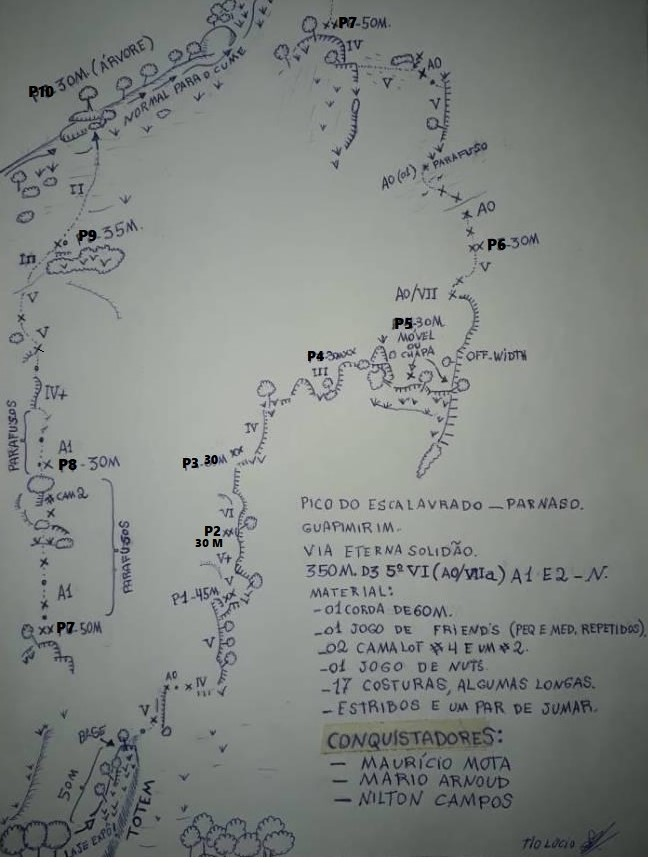 P7-50M.
IV
A0
V
V
P10 30M (ÁRVORE)
NORMAL PARA O CUME
A0(01) PARAFUSO
A0
II
P9-35M.
P6-30M
V
V
A0/VII
P5-30M.
MÓVEL
OU
CHAPA
P4
III
OFF-WIDTH
V
IV+
IV
PARAFUSOS
A1
P8-30M
P3 30
CAM 2
VI
P2
30 M
V+
V
PARAFUSOS
A1
P1-45M
P7-50M
V
A0
IV
V
BASE
50M
TOTEM
PICO DO ESCALAVRADO - PARNASO.
GUAPIMIRIM.
VIA ETERNA SOLIDÃO.
350M. D3 5º VI (A0/VIIa) A1 E2 - N.
MATERIAL:
-01 CORDA DE 60M.
-01 JOGO DE FRIEND'S (PEQ E MED, REPETIDOS)
-02 CAMALOT #4 E UM #2.
-01 JOGO DE NUTS.
-17 COSTURAS, ALGUMAS LONGAS.
-ESTRIBOS E UM PAR DE JUMAR.
CONQUISTADORES:
- MAURÍCIO MOTA
- MARIO ARNOUD
- NILTON CAMPOS
TIO LÚCIO